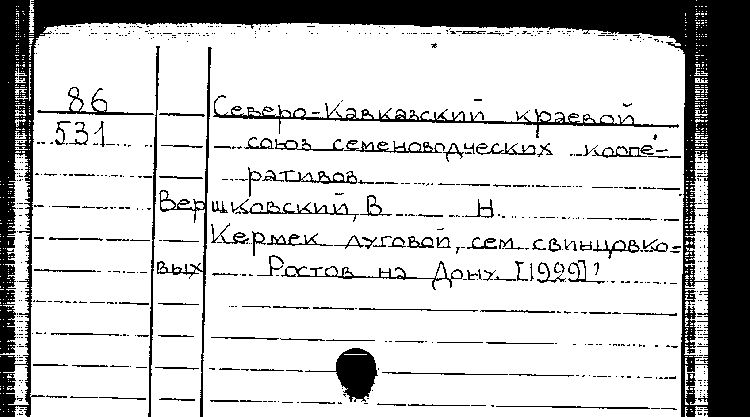 86 Северо-Кавказский краевой
531 союз семеноводческих коопе-
ративов.
Вершковский, В Н.
Кермек луговой, сем. свинцовко-
вых Ростов на Дону. [1929]?